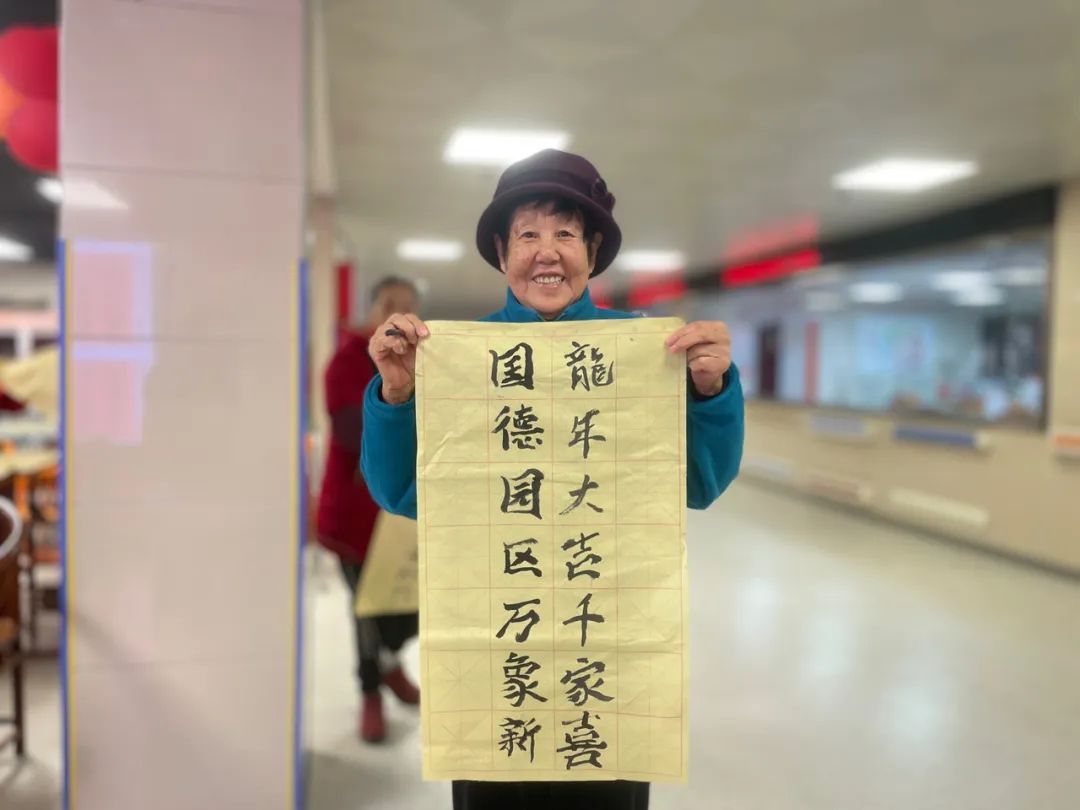 龍年大吉千家喜
国德园区万象新